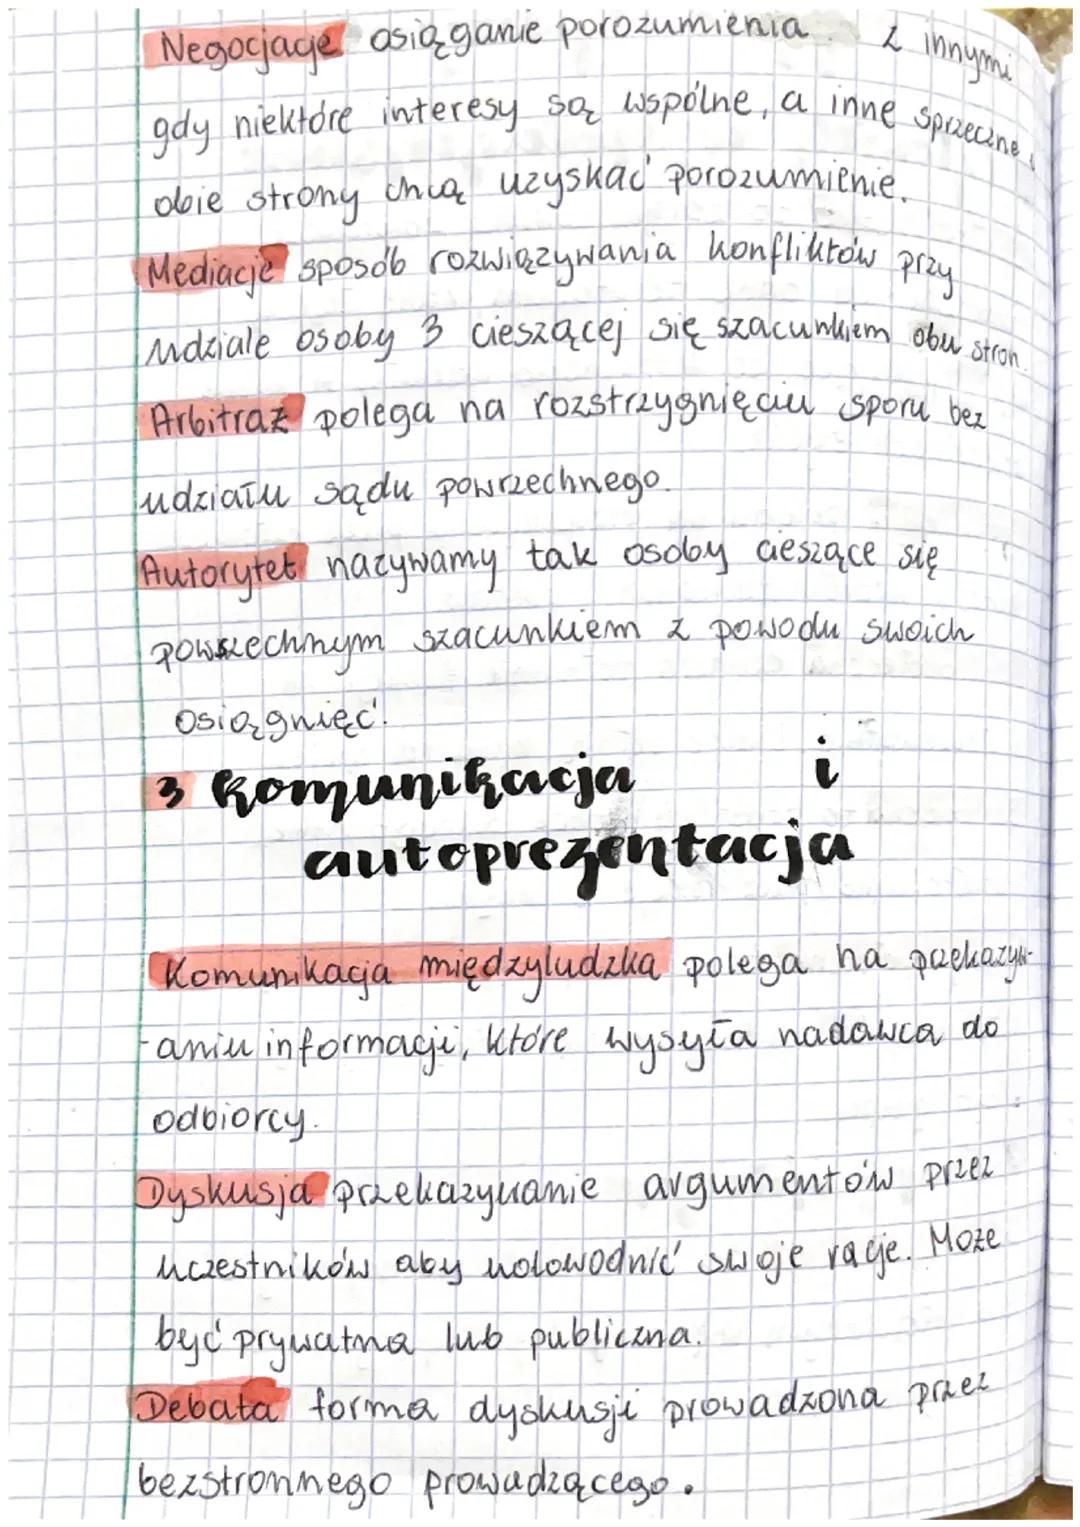 Negocjacje osiąganie porozumienia z innymi
gdy niektóre interesy są wspólne, a inne sprzeczne,
obie strony chcą uzyskać porozumienie.
Mediacje sposób rozwiązywania konfliktów przy
udziale osoby 3 cieszącej się szacunkiem obu stron.
Arbitraż polega na rozstrzygnięciu sporu bez
udziału sądu powrzechnego.
Autorytet nazywamy tak osoby cieszące się
powszechnym szacunkiem z powodu swoich
osiągnięć.
3 Komunikacja i
autoprezentacja
Komunikacja międzyludzka polega na przekazyw-
-aniu informacji, które wysyła nadawca do
odbiorcy.
Dyskusja przekazywanie argumentów przez
uczestników aby udowodnić swoje racje. Może
być prywatna lub publiczna.
Debata forma dyskusji prowadzona przez
bezstronnego prowadzącego.